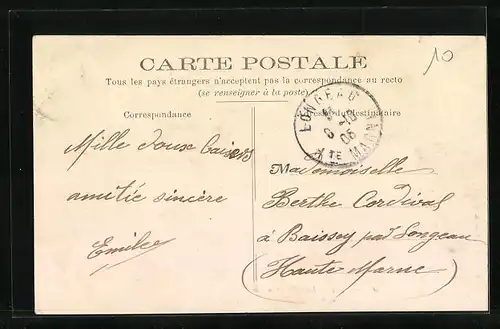 10
CARTE POSTALE
Tous les pays étrangers n'acceptent pas la correspondance au recto
(se renseigner à la poste)
Correspondance
du Destinataire
LONGEAU
06
HTE MARNE
Mille doux baisers
amitié sincère
Emile
Mademoiselle
Berthe Cordival
à Baissey par Longeau
(Haute Marne)